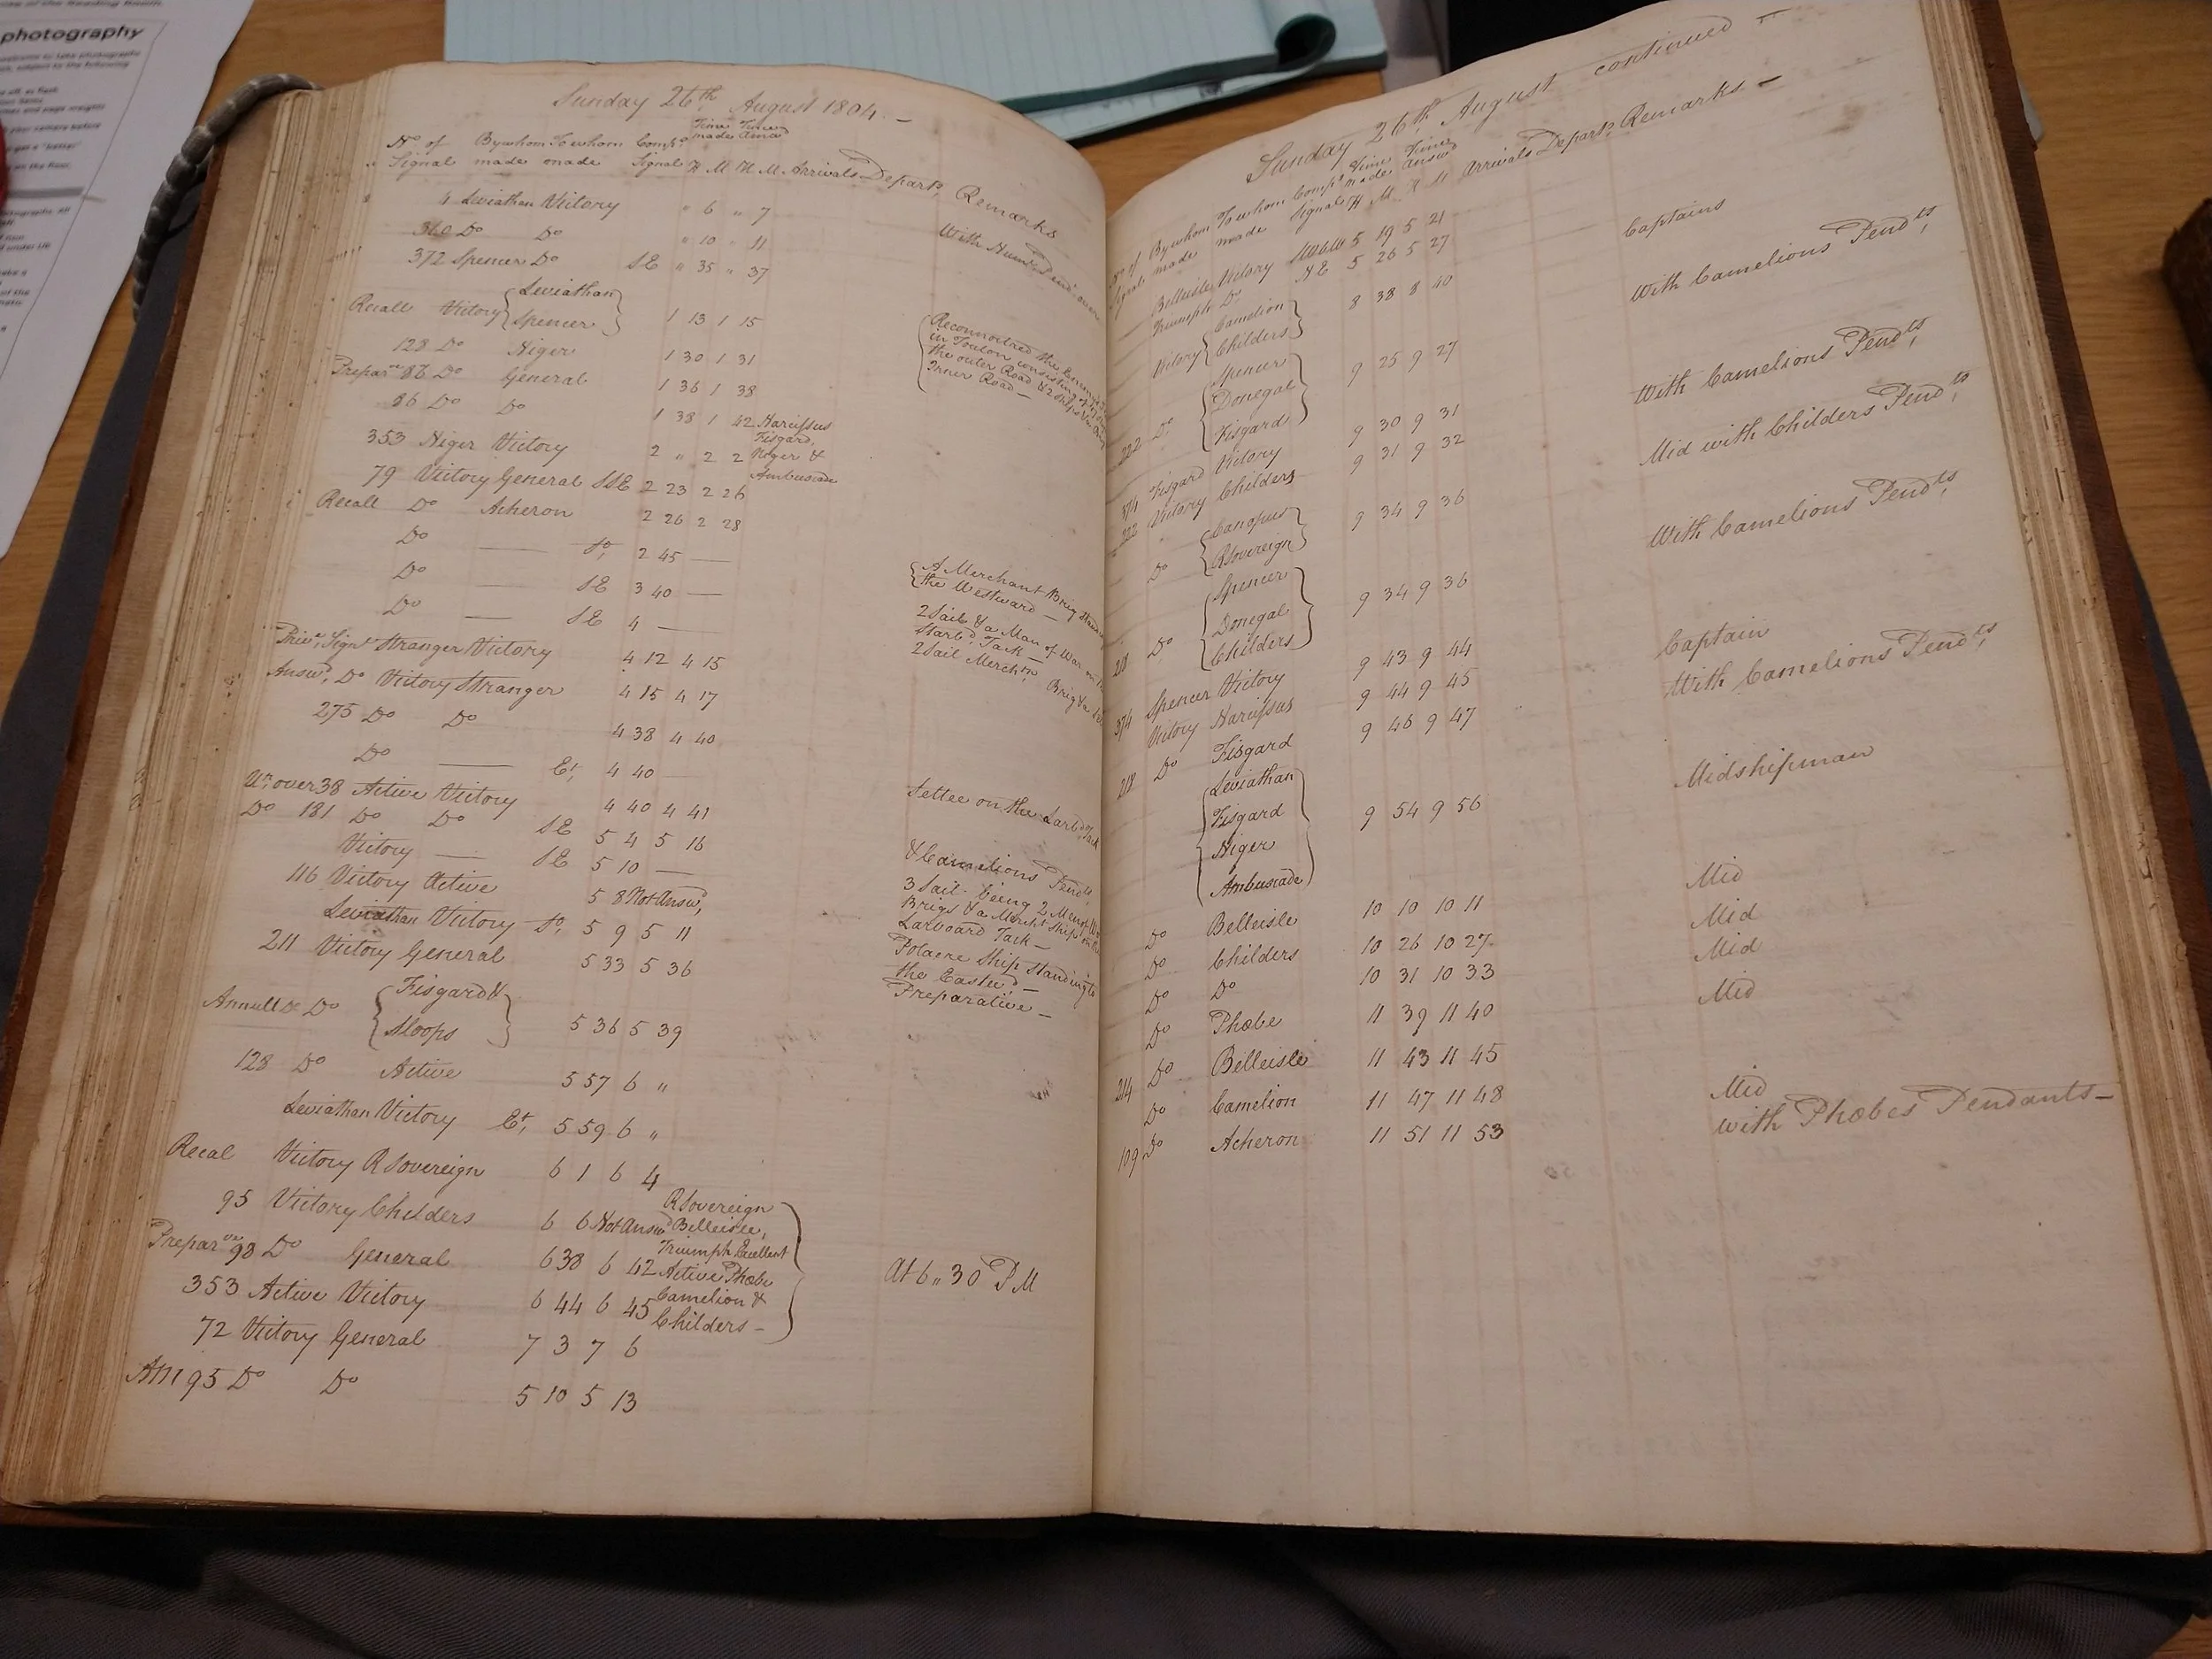 photography
Sunday 26th August 1804. —
No. of By whom To whom Comps. Time Time
made Answd
Signal made made Signal H M H M Arrivals Departs. Remarks
4 Leviathan Victory " 6 " 7
360 Do Do " 10 " 11 With
372 Spencer Do SE " 35 " 37
Recall Victory { Leviathan
Spencer } 1 13 1 15
128 Do Niger 1 30 1 31
Prepar.ve 86 Do General 1 36 1 38
86 Do Do 1 38 1 42 Narcissus
Fisgard,
353 Niger Victory 2 " 2 2 Niger &
Ambuscade
79 Victory General SSE 2 23 2 26
{ Reconnoitred the
in Toulon consisting of
the outer Road & 2 Ships
Inner Road —
Recall Do Acheron 2 26 2 28
Do — So, 2 45 —
Do — SE 3 40 — { A Merchant Brig
the Westward —
Do — SE 4 — 2 Sail & a Man of War on
Starbd. Tack —
Prive. Signl Stranger Victory 4 12 4 15 2 Sail Merchtn Brig & a
Answd, Do Victory Stranger 4 15 4 17
275 Do Do 4 38 4 40
Do — Et, 4 40 — Settee on the Larbd. Tack
Ut. over 38 Active Victory 4 40 4 41
Do 181 Do Do SE 5 4 5 16 & Camelions Pendts
Victory — SE 5 10 — 3 Sail being 2 Men of War
Brigs & a Mercht Ship on the
Larboard Tack —
116 Victory Active 5 8 Not Answd,
Leviathan Victory So, 5 9 5 11 Polacre Ship Standing to
the Eastwd —
211 Victory General 5 33 5 36 Preparative —
Annull& Do { Fisgard &
Sloops } 5 36 5 39
128 Do Active 5 57 6 "
Leviathan Victory Et, 5 59 6 "
Recal Victory R Sovereign 6 1 6 4
95 Victory Childers 6 6 Not Answd
Prepar.ve 98 Do General 6 38 6 42
353 Active Victory 6 44 6 45
R Sovereign
Belleisle,
Triumph Excellent
Active Phœbe
Camelion &
Childers — } At 6 " 30 P M
72 Victory General 7 3 7 6
Anl 95 Do Do 5 10 5 13
Sunday 26th August continued —
No. of By whom To whom Comps. Time Time
made Answd
Signal made made Signal H M H M Arrivals Departs. Remarks —
Belleisle Victory 5 19 5 21
Triumph Do NE 5 26 5 27
Victory { Camelion
Childers } 8 38 8 40 Captains
222 Do { Spencer
Donegal
Fisgard } 9 25 9 27 With Camelions Pendts,
374 Fisgard Victory 9 30 9 31
222 Victory Childers 9 31 9 32 With Camelions Pendts,
Do { Canopus
R Sovereign } 9 34 9 36 Mid with Childers Pendts,
211 Do { Spencer
Donegal
Childers } 9 34 9 36 With Camelions Pendts,
374 Spencer Victory 9 43 9 44
Victory Narcissus 9 44 9 45 Captain
212 Do Fisgard 9 46 9 47 With Camelions Pendts,
{ Leviathan
Fisgard
Niger
Ambuscade } 9 54 9 56 Midshipman
Do Belleisle 10 10 10 11 Mid
Do Childers 10 26 10 27 Mid
Do Do 10 31 10 33 Mid
Do Phœbe 11 39 11 40 Mid
214 Do Belleisle 11 43 11 45
Do Camelion 11 47 11 48 Mid
109 Do Acheron 11 51 11 53 with Phœbes Pendants —